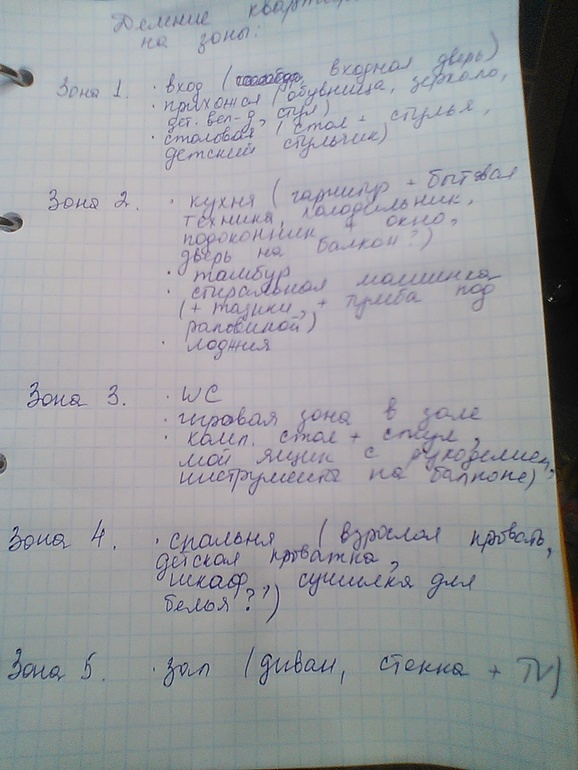 Деление квартиры
на зоны:
Зона 1. · вход ( входная дверь)
· прихожая (обувница, зеркало,
дет. вел-д, стул)
· столовая (стол + стулья,
детский стульчик)
Зона 2. · кухня (гарнитур + бытовая
техника, холодильник,
подоконник + окно,
дверь на балкон?)
· тамбур
· стиральная машинка
(+ тазики, + тумба под
раковиной)
· лоджия
Зона 3. · WC
· игровая зона в зале
· комп. стол + стул,
мой ящик с рукоделием,
инструмента на балконе)
Зона 4. · спальня (взрослая кровать,
детская кроватка,
шкаф, сушилка для
белья?)
Зона 5. · зал (диван, стенка + TV)